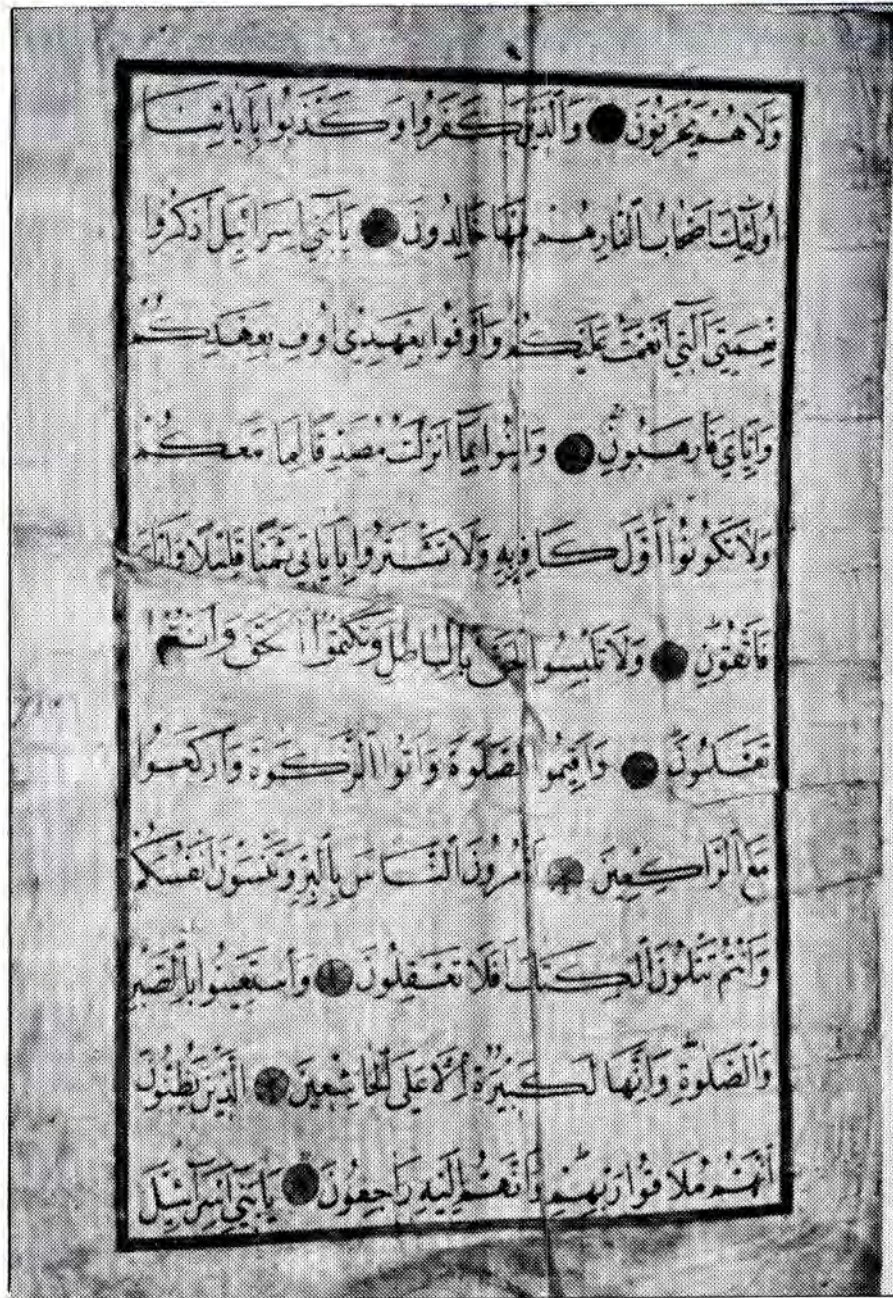 وَلَا هُمْ يَحْزَنُونَ ● وَالَّذِينَ كَفَرُوا وَكَذَّبُوا بِاٰيَاتِنَا
اُولٰئِكَ اَصْحَابُ النَّارِ هُمْ فِيهَا خَالِدُونَ ● يَا بَنِي اِسْرَائِيلَ اذْكُرُوا
نِعْمَتِيَ الَّتِي اَنْعَمْتُ عَلَيْكُمْ وَاَوْفُوا بِعَهْدِي اُوفِ بِعَهْدِكُمْ
وَاِيَّايَ فَارْهَبُونِ ● وَاٰمِنُوا بِمَا اَنْزَلْتُ مُصَدِّقًا لِمَا مَعَكُمْ
وَلَا تَكُونُوا اَوَّلَ كَافِرٍ بِهِ وَلَا تَشْتَرُوا بِاٰيَاتِي ثَمَنًا قَلِيلًا وَاِيَّايَ
فَاتَّقُونِ ● وَلَا تَلْبِسُوا الْحَقَّ بِالْبَاطِلِ وَتَكْتُمُوا الْحَقَّ وَاَنْتُمْ
تَعْلَمُونَ ● وَاَقِيمُوا الصَّلٰوةَ وَاٰتُوا الزَّكٰوةَ وَارْكَعُوا
مَعَ الرَّاكِعِينَ ● اَتَاْمُرُونَ النَّاسَ بِالْبِرِّ وَتَنْسَوْنَ اَنْفُسَكُمْ
وَاَنْتُمْ تَتْلُونَ الْكِتَابَ اَفَلَا تَعْقِلُونَ ● وَاسْتَعِينُوا بِالصَّبْرِ
وَالصَّلٰوةِ وَاِنَّهَا لَكَبِيرَةٌ اِلَّا عَلَى الْخَاشِعِينَ ● الَّذِينَ يَظُنُّونَ
اَنَّهُمْ مُلَاقُوا رَبِّهِمْ وَاَنَّهُمْ اِلَيْهِ رَاجِعُونَ ● يَا بَنِي اِسْرَائِيلَ